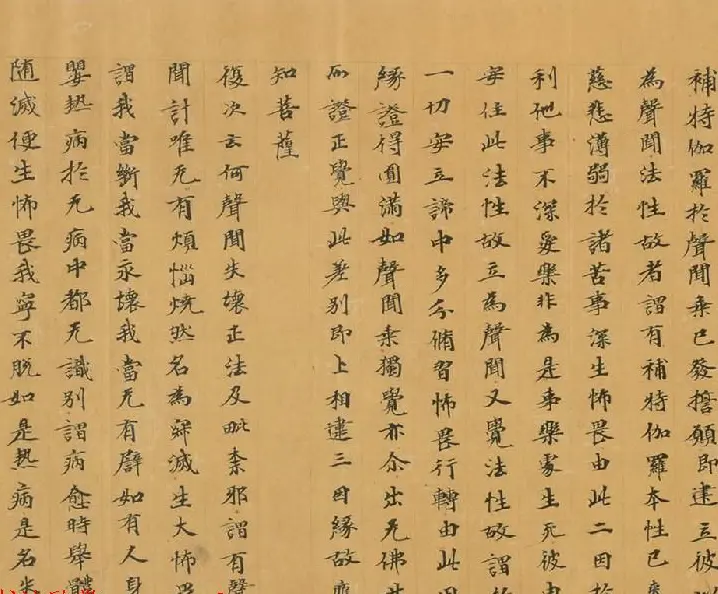 補特伽羅於聲聞乘已發擔願即建立彼
為聲聞法性故者謂有補特伽羅本性已
慈悲薄弱於諸苦事深生怖畏由此二因於
利他事不深愛樂非為是事樂處生死彼由
安住此法性故立為聲聞又覺法性故謂於
一切安立諦中多分脩習怖畏行轉由此因
緣證得圓滿如聲聞乘獨覺亦尒出无佛世
而證正覺與此差別即上相違三因緣故應
知菩薩
復次云何聲聞失壞正法及毗柰耶謂有聲
聞計唯无有煩惱燒然名為寂滅生大怖畏
謂我當斷我當永壞我當无有譬如有人身
嬰熱病於无病中都无識別謂病愈時舉體
随滅便生怖畏我寧不脫如是熱病是名失